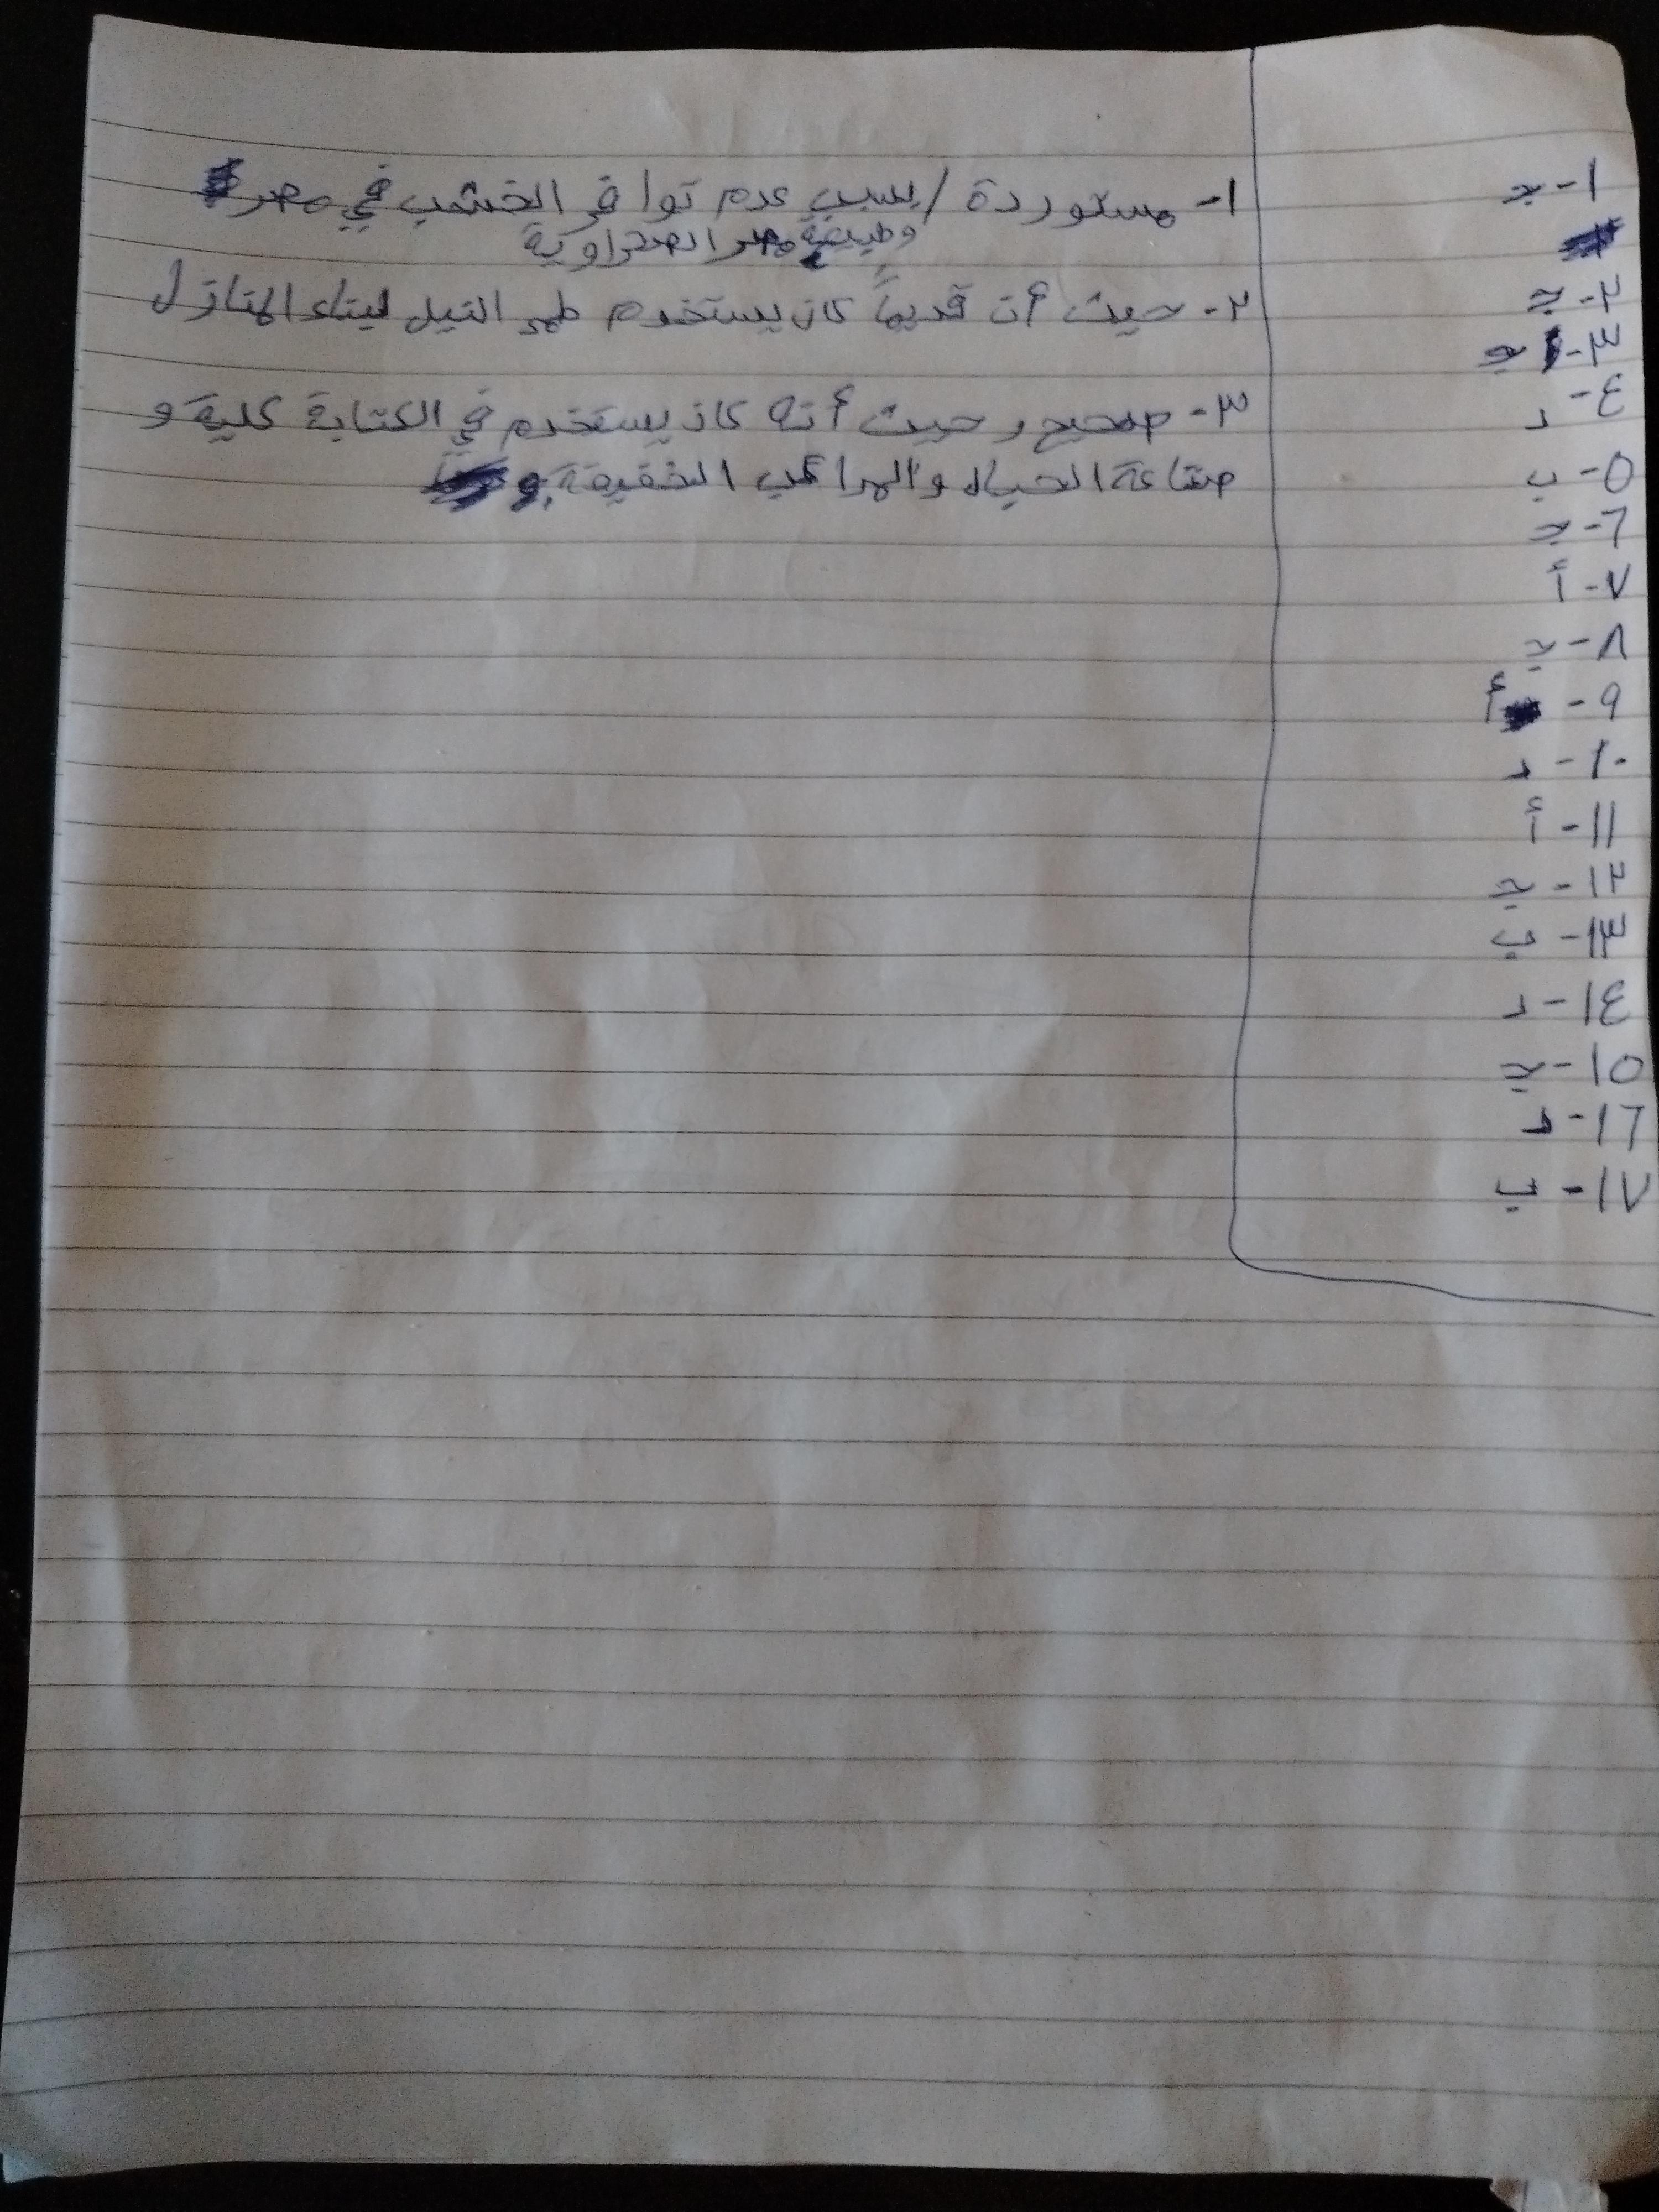 ١- جـ
٢- جـ
٣- جـ
٤- د
٥- ب
٦- جـ
٧- أ
٨- جـ
٩- أ
١٠- د
١١- أ
١٢- جـ
١٣- ب
١٤- د
١٥- جـ
١٦- د
١٧- ب
١- مستوردة / بسبب عدم توافر الخشب في مصر
وطبيعة مصر الصحراوية
٢- حيث أن قديماً كان يستخدم طمي النيل لبناء المنازل
٣- صحيح و حيث أنه كان يستخدم في الكتابة عليه و
صناعة الحبال والمراكب الخفيفة